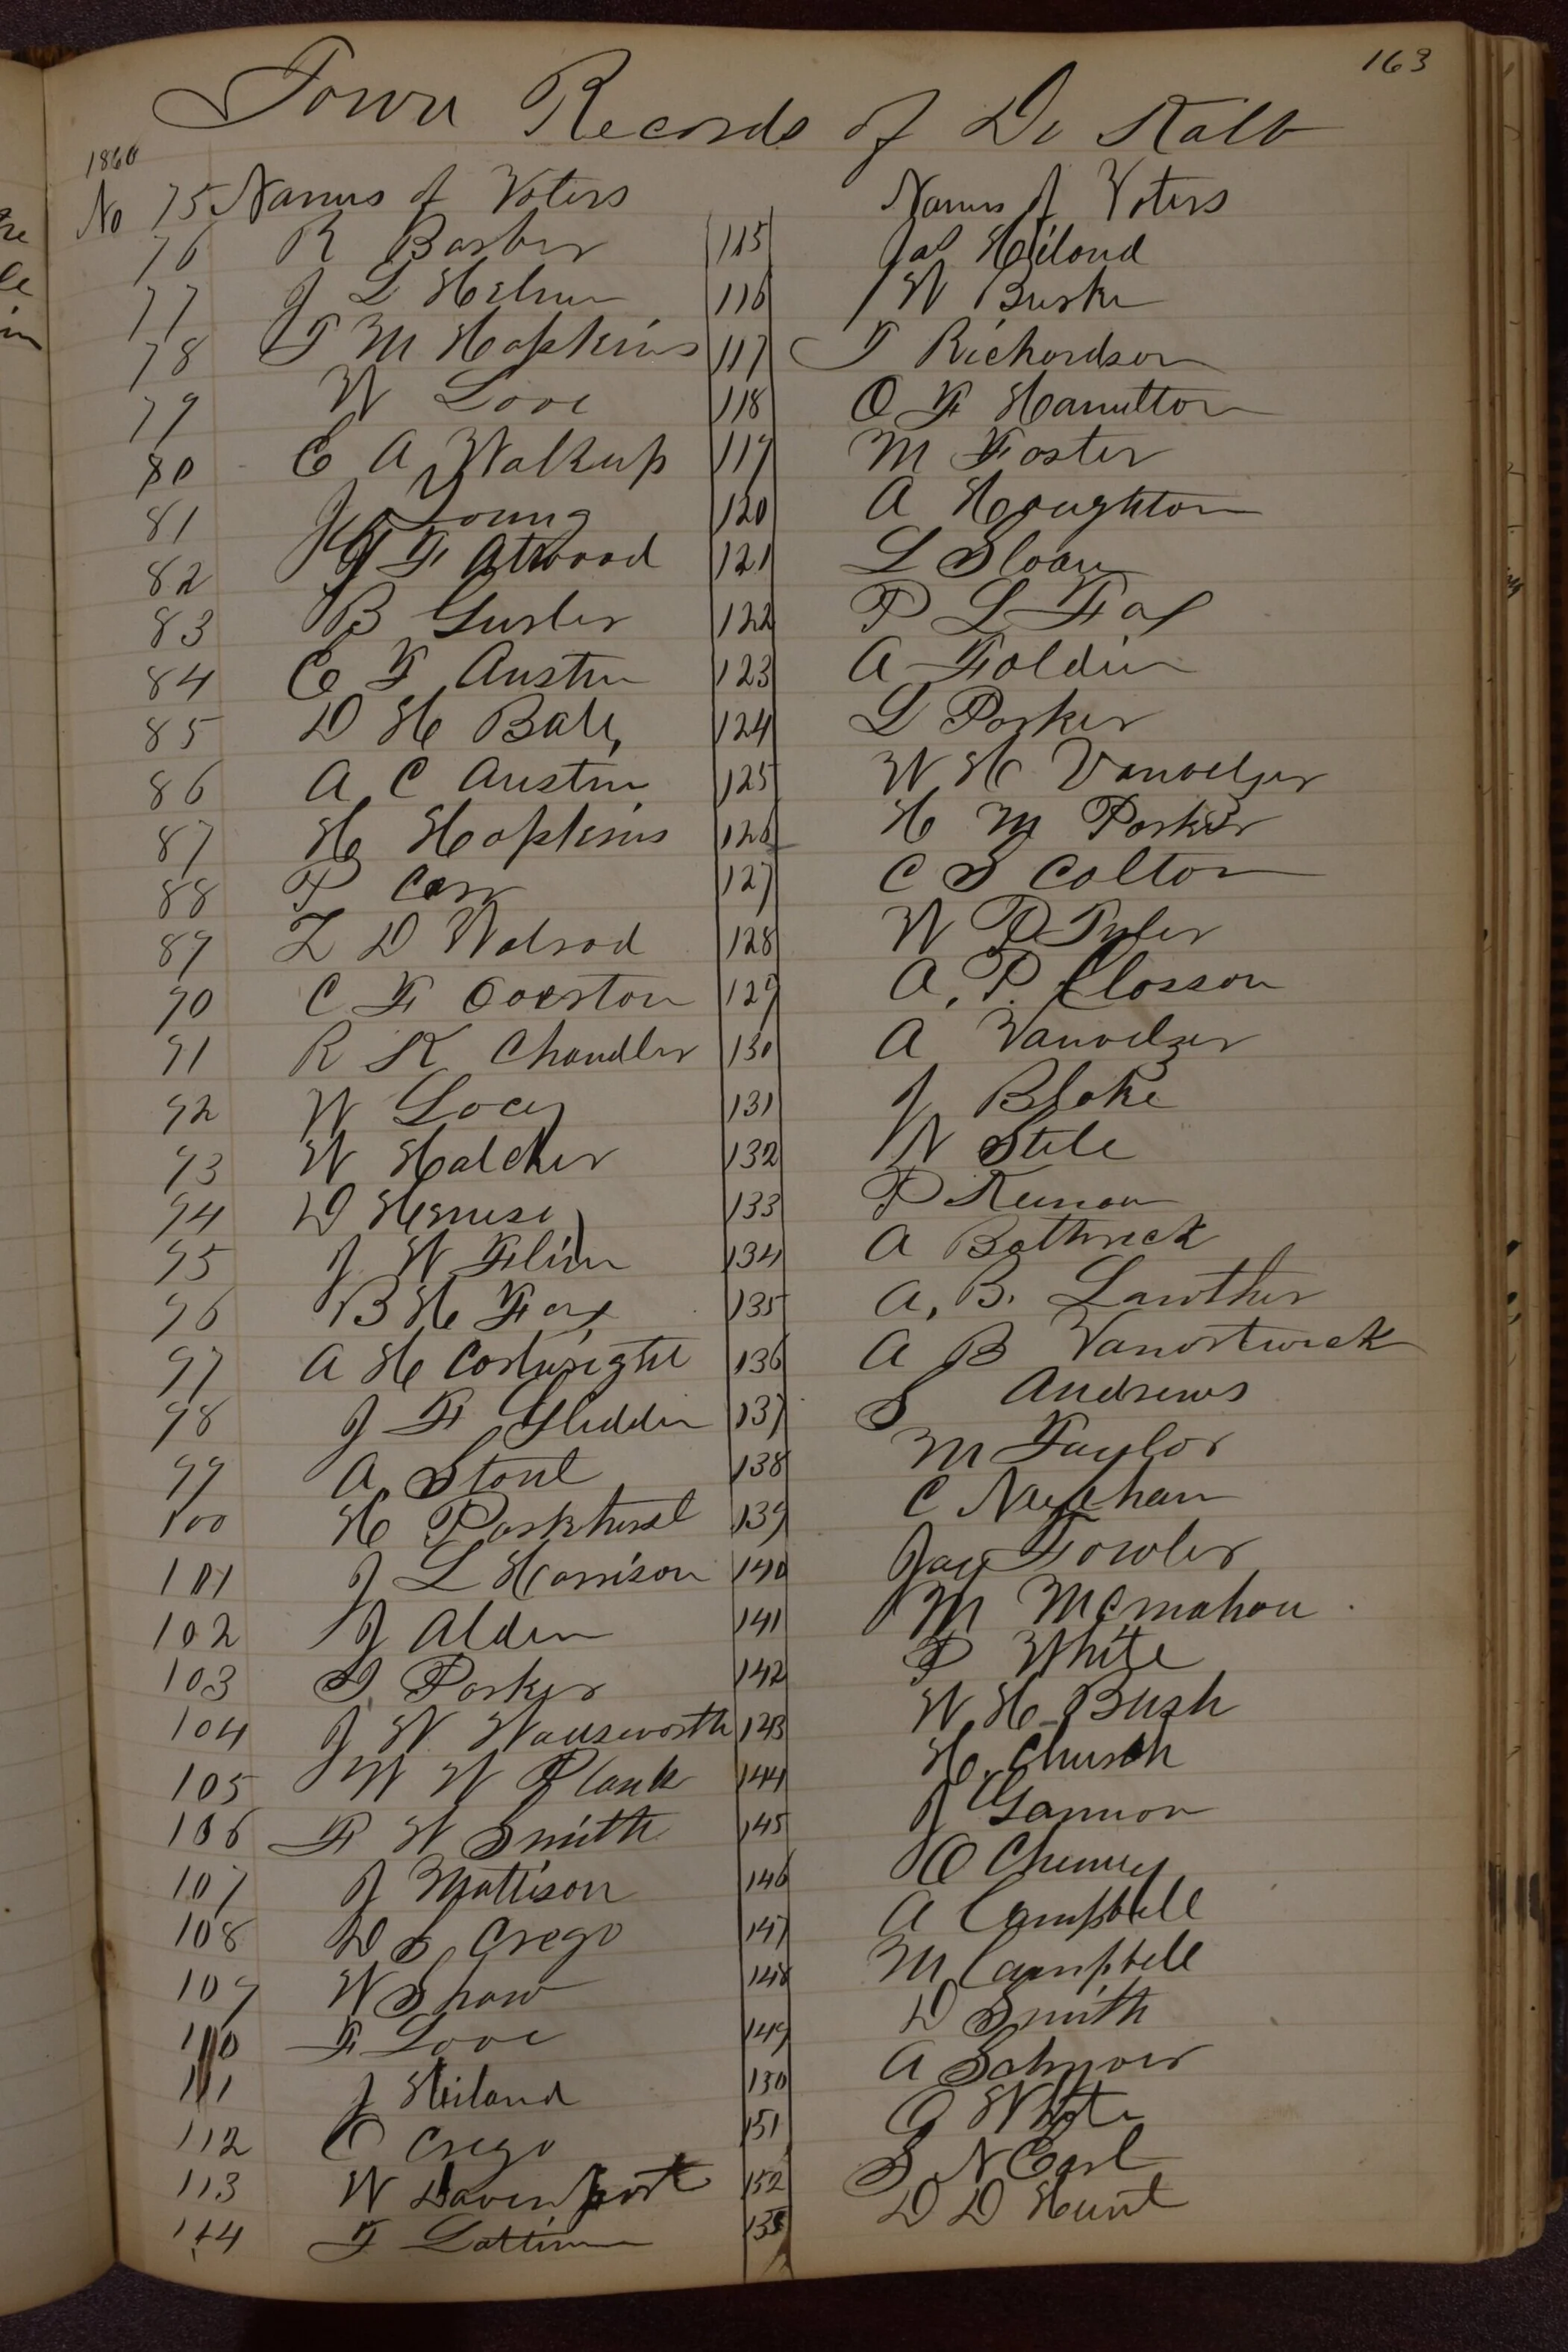 163
Town Records of De Kalb
1860
No 75 Names of Voters Names of Voters
76 R Barber 115 Jas Hiland
77 J L Helm 116 W Burke
78 T M Hopkins 117 T Richardson
79 W Love 118 O F Hamilton
80 E A Walkup 119 M Foster
81 J Young 120 A Houghton
82 J F Atwood 121 L Sloan
83 B Gurler 122 P L Fay
84 E F Austin 123 A Foldin
85 D H Bate, 124 L Parker
86 A C Austin 125 W H Vanvelzer
87 H Hopkins 126 H M Parker
88 P Carr 127 C S Colton
89 Z D Walrod 128 W P Tyler
90 C F 129 A. P. Closson
91 R K Chandler 130 A Vanvelzer
92 W Locey 131 J Blake
93 W Hatcher 132 W Stele
94 D 133 P
95 J W Flinn 134 A Bathrick
96 B H Fay 135 A. B. Lawther
97 A H Cartwright 136 A B Vanostwick
98 J F Glidden 137 S Andrews
99 A. Stout 138 M Taylor
100 H Parkhurst 139 C
101 J L Harrison 140 Jay Fowler
102 J Alden 141 M Mcmahon
103 I. Parker 142 P White
104 J W Wadsworth 143 W. H. Bush
105 W W Plank 144 H. Church
106 F W Smith 145 J Gannon
107 J Mattison 146 O Chenney
108 D S Crego 147 A Campbell
109 W Shaw 148 M Campbell
110 F Love 149 D Smith
111 J Hiland 150 A Schryver
112 O Crego 151 O White
113 W Davenport 152 S N Earl
114 F Lattin 153 D D Hunt